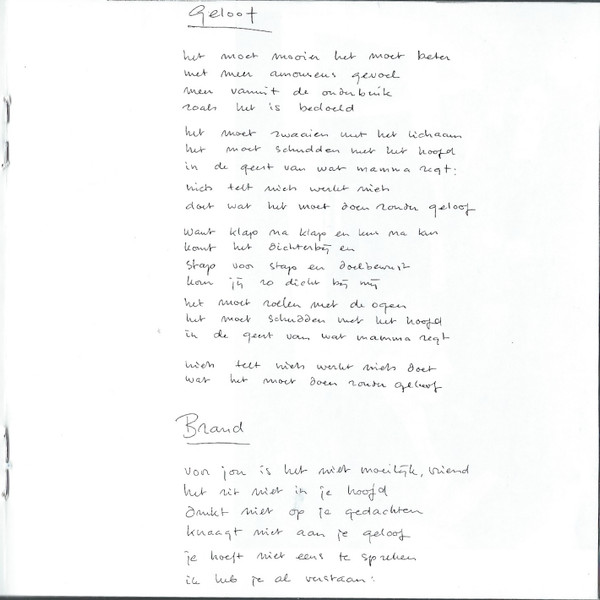 Geloof
het moet mooier het moet beter
met meer amoureus gevoel
meer vanuit de onderbuik
zoals het is bedoeld
het moet zwaaien met het lichaam
het moet schudden met het hoofd
in de geest van wat mamma zegt:
niets telt niets werkt niets
doet wat het moet doen zonder geloof
want klap na klap en kus na kus
komt het dichterbij en
stap voor stap en doelbewust
kom jij zo dicht bij mij
het moet rollen met de ogen
het moet schudden met het hoofd
in de geest van wat mamma zegt
niets telt niets werkt niets doet
wat het moet doen zonder geloof
Brand
voor jou is het niet moeilijk, vriend
het zit niet in je hoofd
drukt niet op je gedachten
knaagt niet aan je geloof
je hoeft niet eens te spreken
ik heb je al verstaan: